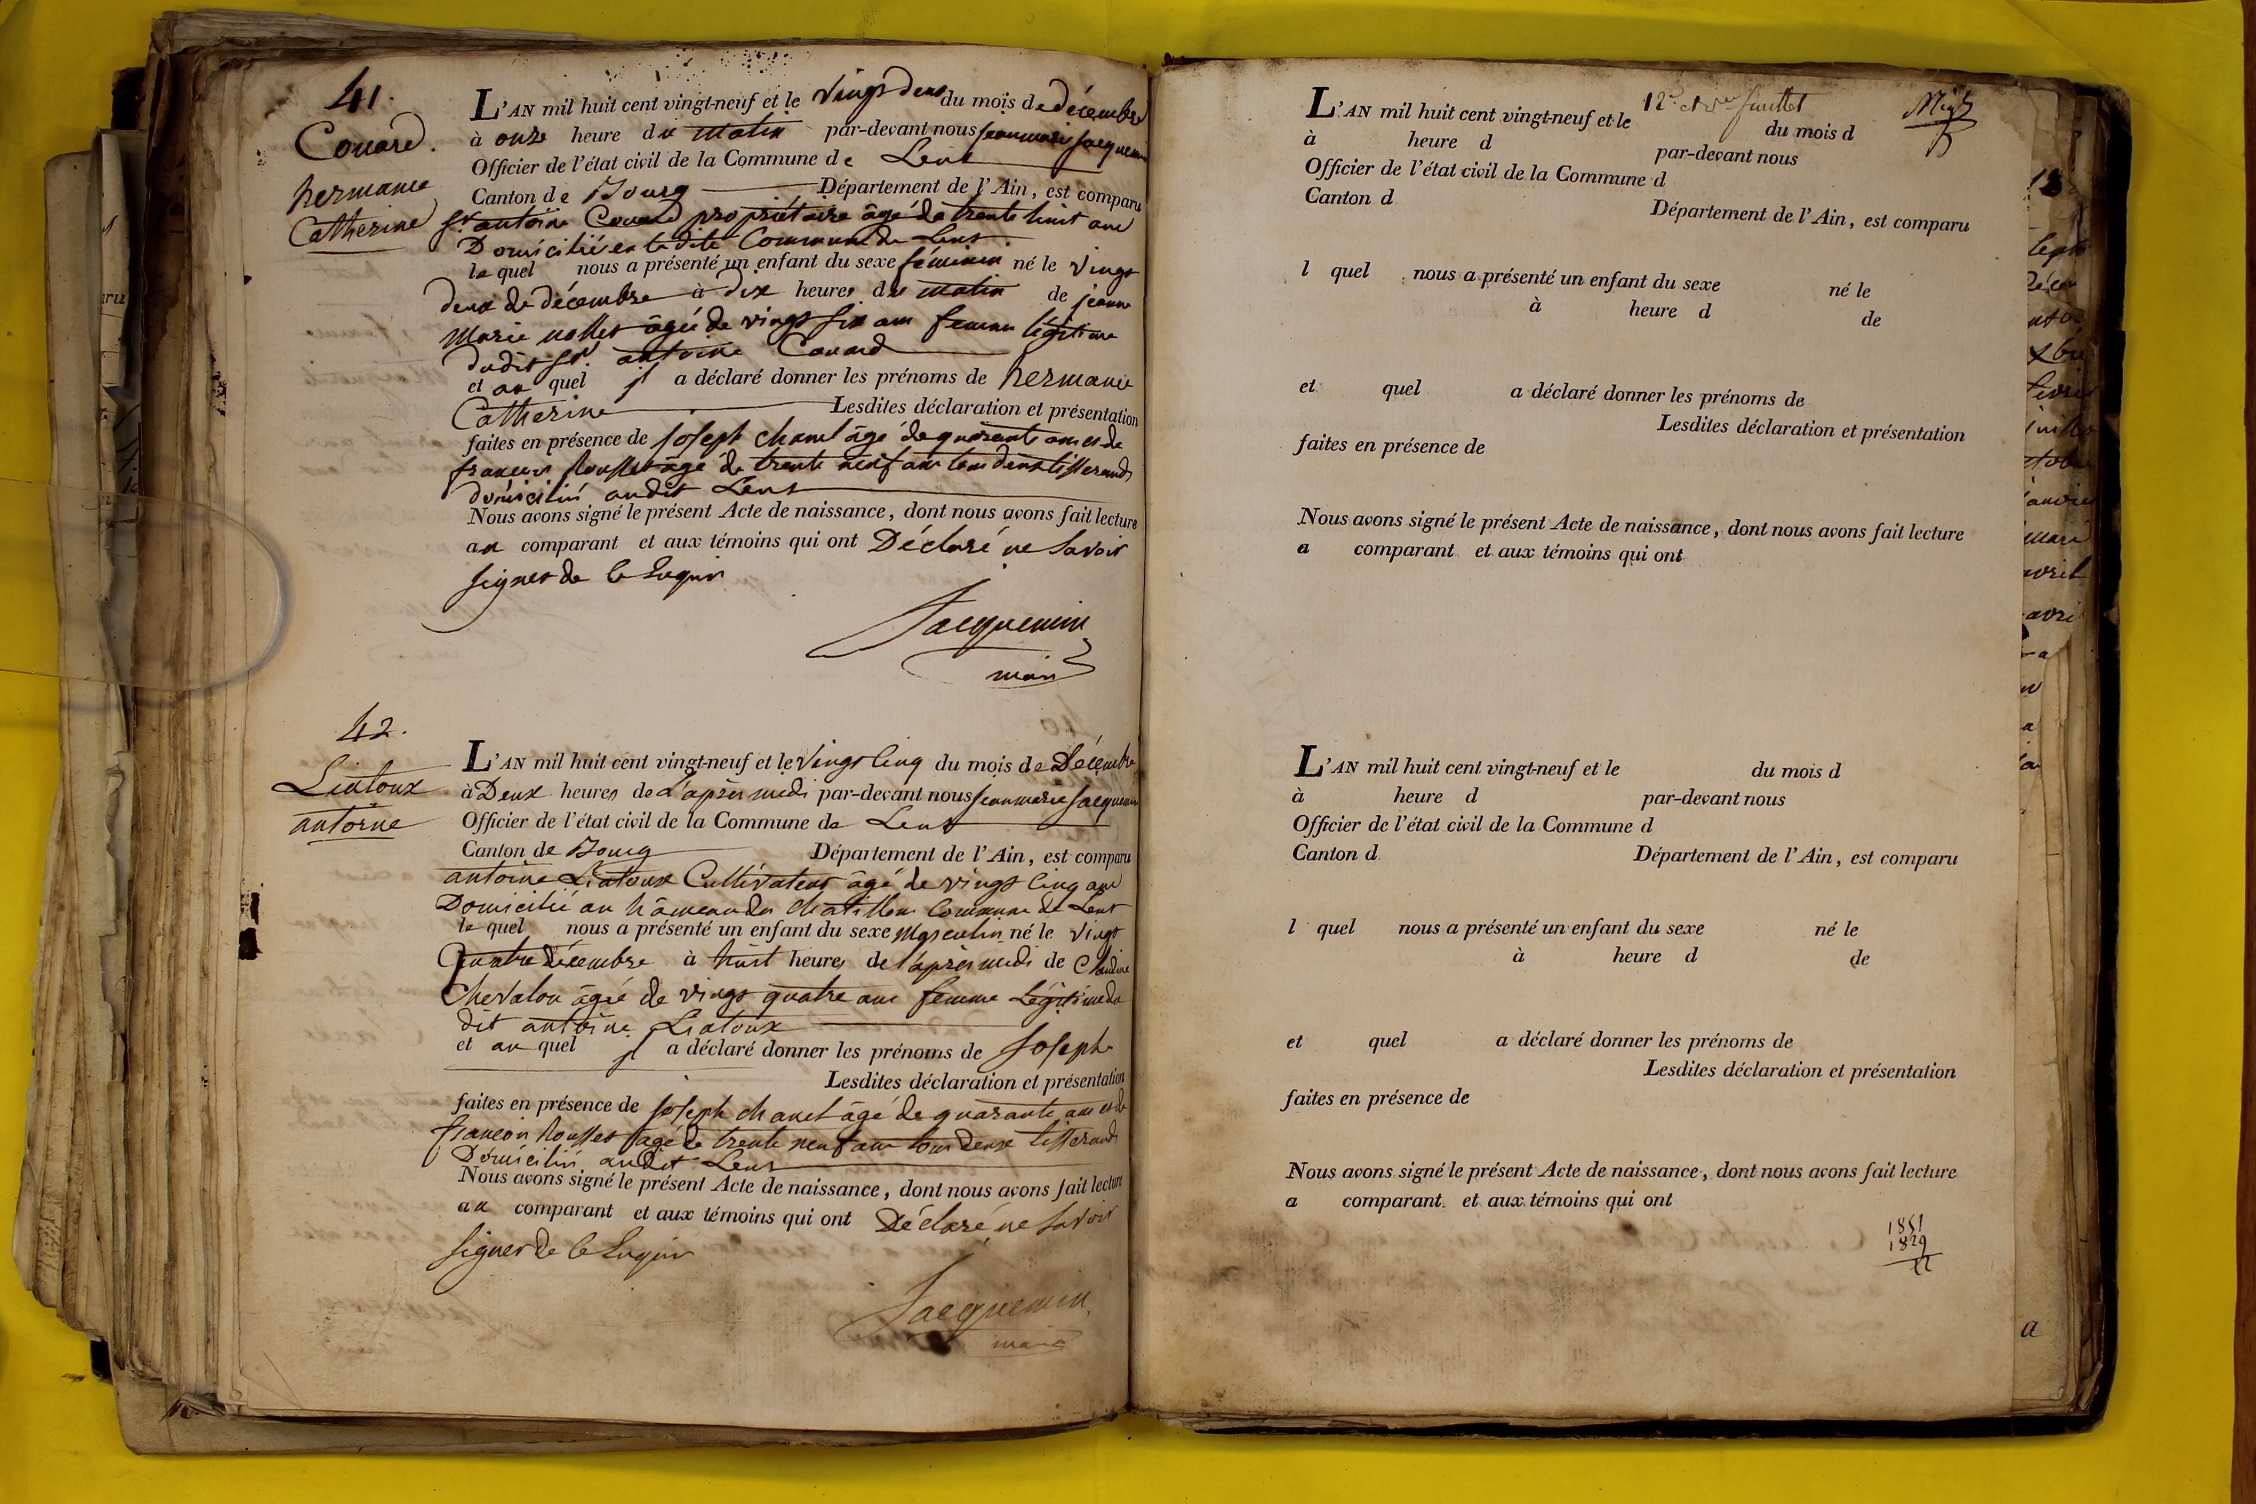 41.
Couard.
hermanie
Catherine
L'AN mil huit cent vingt-neuf et le vingt deux du mois de décembre
à onze heure du matin par-devant nous jean marie jacquemin
Officier de l'état civil de la Commune de Lent
Canton de Bourg Département de l'Ain, est comparu
sr. antoine Couard propriétaire âgé de trente huit ans
Domicilié en la dite Commune de Lent.
le quel nous a présenté un enfant du sexe féminin né le vingt
deux de décembre à dix heures du matin de jeanne
Marie âgée de vingt six ans femme légitime
dudit sr. antoine Couard
et au quel il a déclaré donner les prénoms de hermanie
Catherine Lesdites déclaration et présentation
faites en présence de joseph chanel âgé de quarante ans et de
françois Rousset âgé de trente neuf ans tous deux tisserands
domiciliés audit Lent
Nous avons signé le présent Acte de naissance, dont nous avons fait lecture
au comparant et aux témoins qui ont Déclaré ne savoir
signer de ce Requis
Jacquemin
maire
42.
Liatoux
antoine
L'AN mil huit cent vingt-neuf et le vingt cinq du mois de Décembre
à Deux heures de L'après midi par-devant nous jean marie jacquemin
Officier de l'état civil de la Commune de Lent
Canton de Bourg Département de l'Ain, est comparu
antoine Liatoux Cultivateur âgé de vingt cinq ans
Domicilié au hâmeau du chatillon Commune de Lent
le quel nous a présenté un enfant du sexe Masculin né le vingt
Quatre Décembre à huit heures de l'après midi de Claudine
Chevalon âgée de vingt quatre ans femme Légitime du
dit antoine Liatoux
et au quel il a déclaré donner les prénoms de joseph
Lesdites déclaration et présentation
faites en présence de joseph chanel âgé de quarante ans et de
françois Rousset âgé de trente neuf ans tous deux tisserands
Domiciliés audit Lent
Nous avons signé le présent Acte de naissance, dont nous avons fait lecture
au comparant et aux témoins qui ont Déclaré ne savoir
signer de ce Requis
Jacquemin
maire
12e. et feuillet
L'AN mil huit cent vingt-neuf et le du mois d
à heure d par-devant nous
Officier de l'état civil de la Commune d
Canton d Département de l'Ain, est comparu
l quel nous a présenté un enfant du sexe né le
à heure d de
et quel a déclaré donner les prénoms de
Lesdites déclaration et présentation
faites en présence de
Nous avons signé le présent Acte de naissance, dont nous avons fait lecture
a comparant et aux témoins qui ont
L'AN mil huit cent vingt-neuf et le du mois d
à heure d par-devant nous
Officier de l'état civil de la Commune d
Canton d Département de l'Ain, est comparu
l quel nous a présenté un enfant du sexe né le
à heure d de
et quel a déclaré donner les prénoms de
Lesdites déclaration et présentation
faites en présence de
Nous avons signé le présent Acte de naissance, dont nous avons fait lecture
a comparant et aux témoins qui ont
1851
1829
22